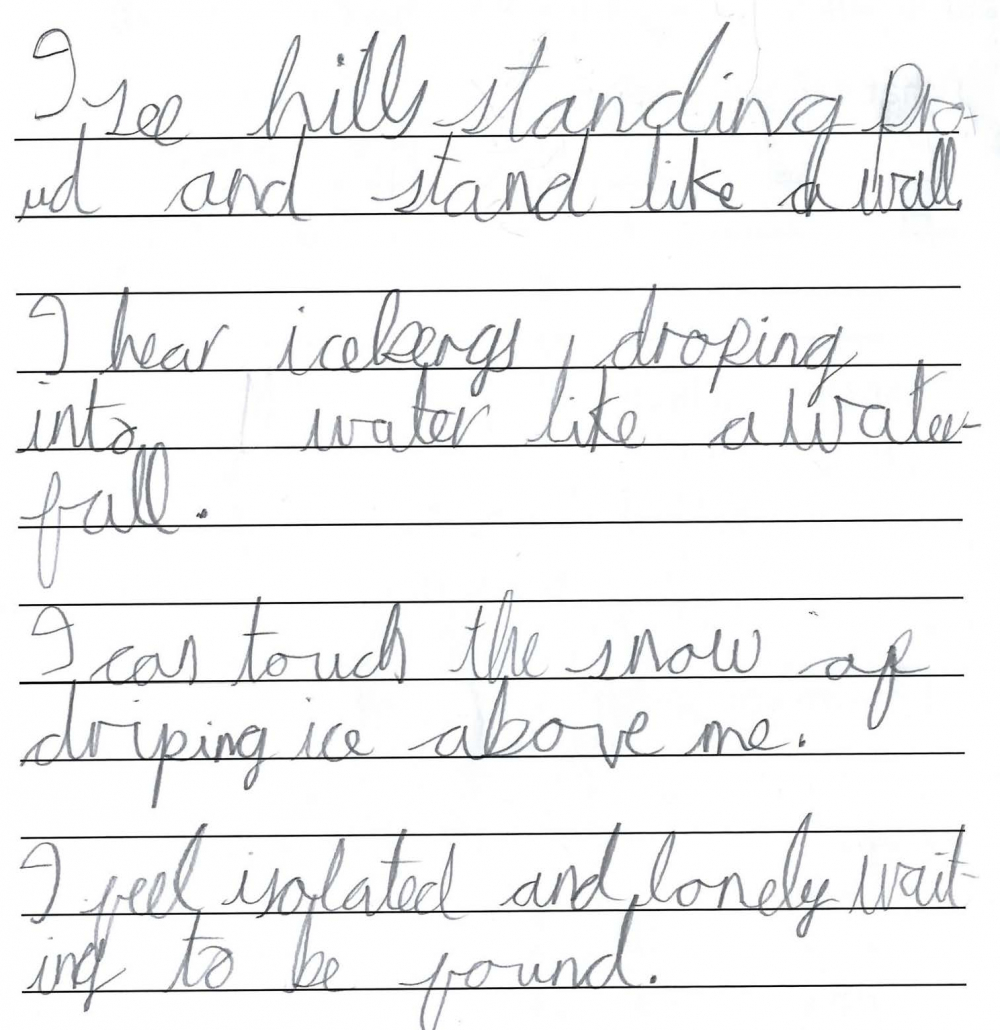 I see hills standing pro-
ud and stand like a wall.
I hear icebergs droping
into water like a water-
fall.
I can touch the snow of
driping ice above me.
I feel isolated and lonely wait-
ing to be found.